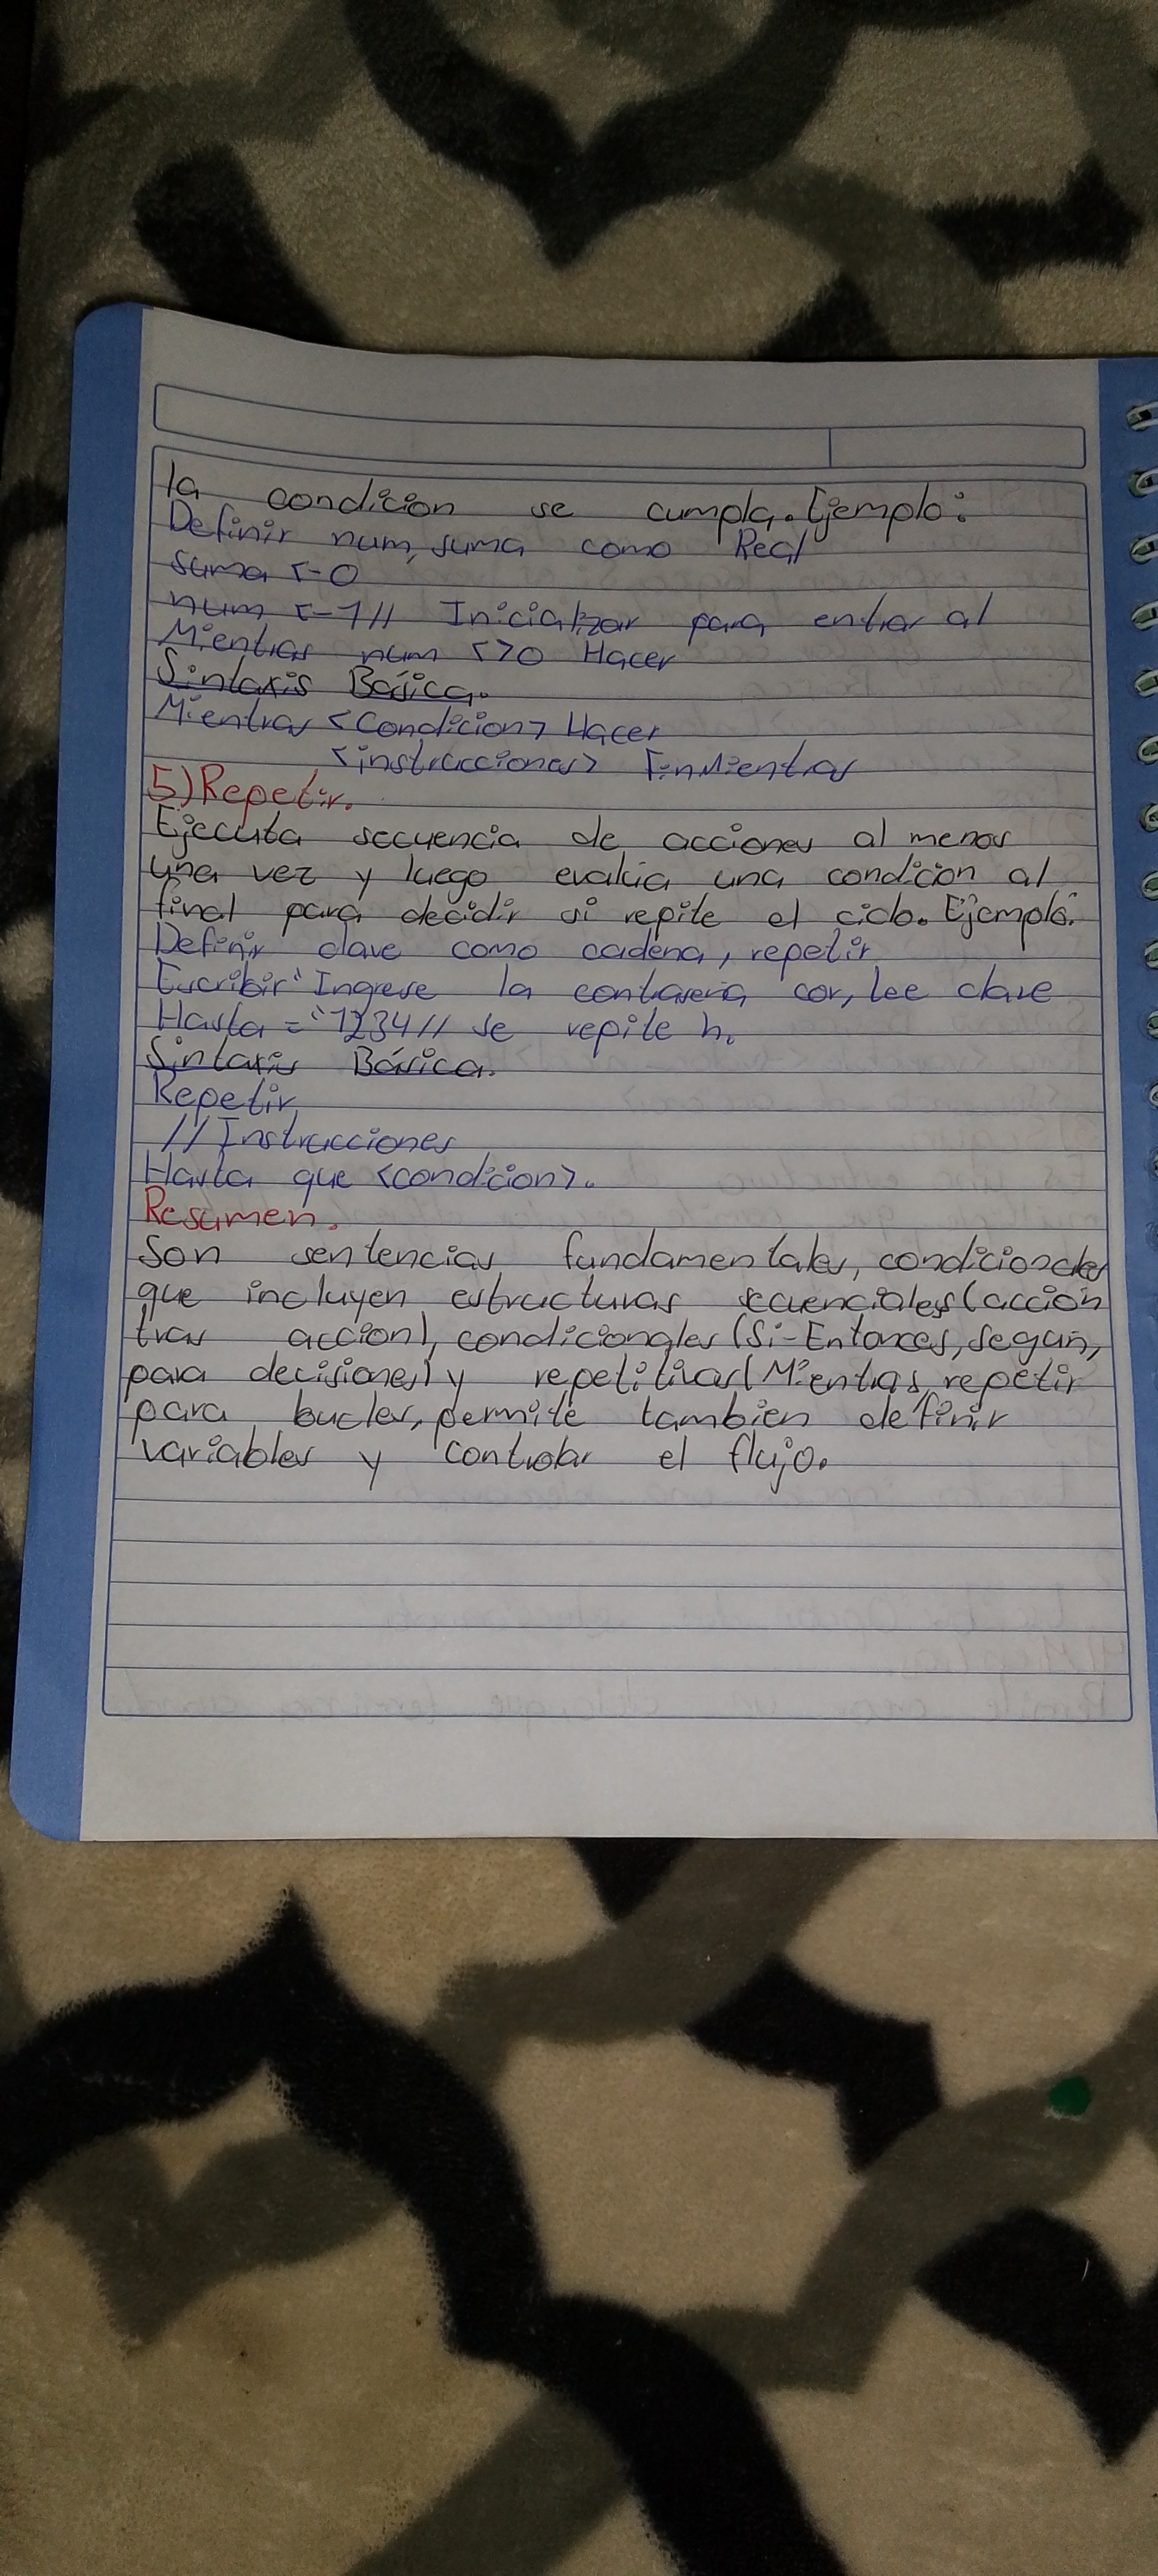 la condicion se cumpla. Ejemplo:
Definir num, suma como Real
suma <-0
num <-1// Inicializar para entrar al
Mientras num <>0 Hacer
Sintaxis Básica.
Mientras <Condicion> Hacer
<instrucciones> FinMientras
5) Repetir.
Ejecuta secuencia de acciones al menos
una vez y luego evalúa una condicion al
final para decidir si repite el ciclo. Ejemplo:
Definir clave como cadena, repetir
Escribir "Ingrese la contraseña cor, lee clave
Hasta = "1234// se repite h.
Sintaxis Básica.
Repetir
//Instrucciones
Hasta que <condicion>.
Resumen.
Son sentencias fundamentales, condicionales
que incluyen estructuras secuenciales (accion
tras accion), condicionales (Si-Entonces, según,
para decisiones) y repetitivas (Mientras, repetir
para bucles, permite tambien definir
variables y controlar el flujo.